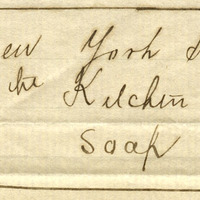 ew York &
the Kitchen
Soap